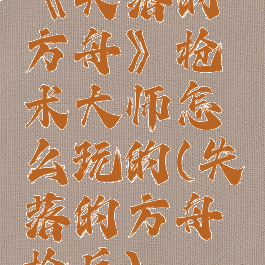 《失落的
方舟》枪
术大师怎
么玩的(失
落的方舟
枪兵)